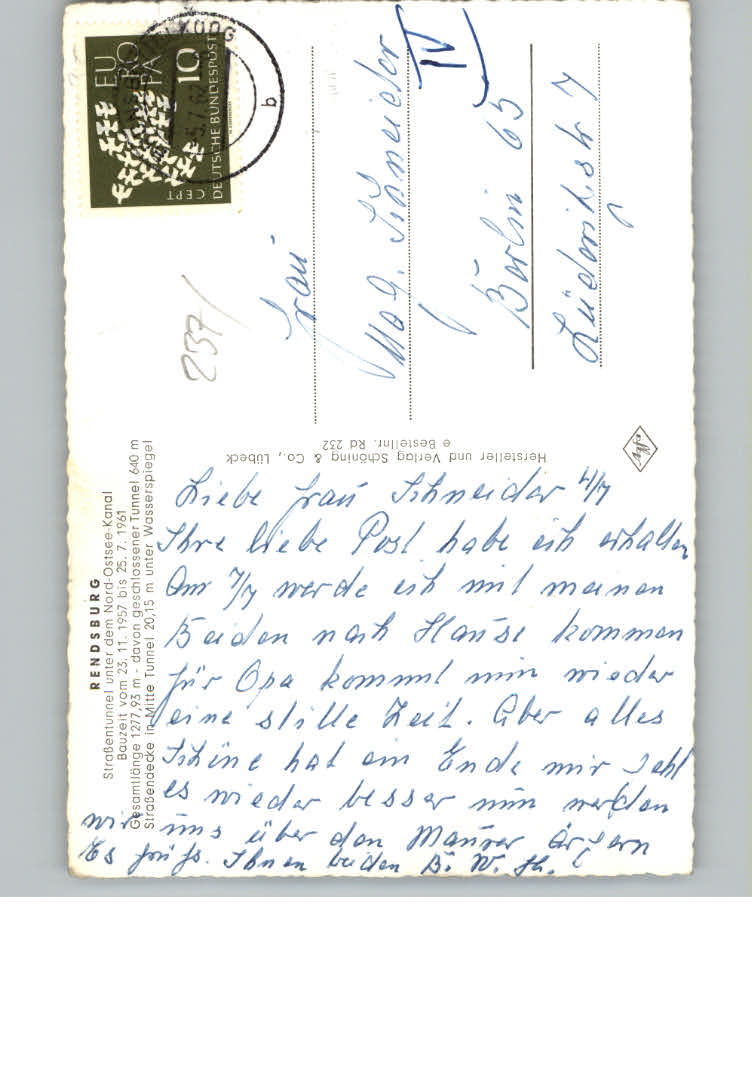 RENDSBURG
Straßentunnel unter dem Nord-Ostsee-Kanal
Bauzeit vom 23. 11. 1957 bis 25. 7. 1961
Gesamtlänge 1277,93 m - davon geschlossener Tunnel 640 m
Straßendecke in Mitte Tunnel 20,15 m unter Wasserspiegel
Liebe Frau Schneider 4/7
Ihre liebe Post habe ich erhalten
Am 7/7 werde ich mit meinen
Beiden nach Hause kommen
für Opa kommt nun wieder
eine stille Zeit. Aber alles
Schöne hat ein Ende mir geht
es wieder besser nun werden
wir uns über den Maurer ärgern
Es grüßt Ihnen beiden B. W.
Hersteller und Verlag Schöning & Co., Lübeck
e Bestellnr. Rd 232
Agfa
237/
EUROPA
10
DEUTSCHE BUNDESPOST
CEPT
b
Frau
Mag. Schneider
IV
Berlin 65
Lüderitzstr 7